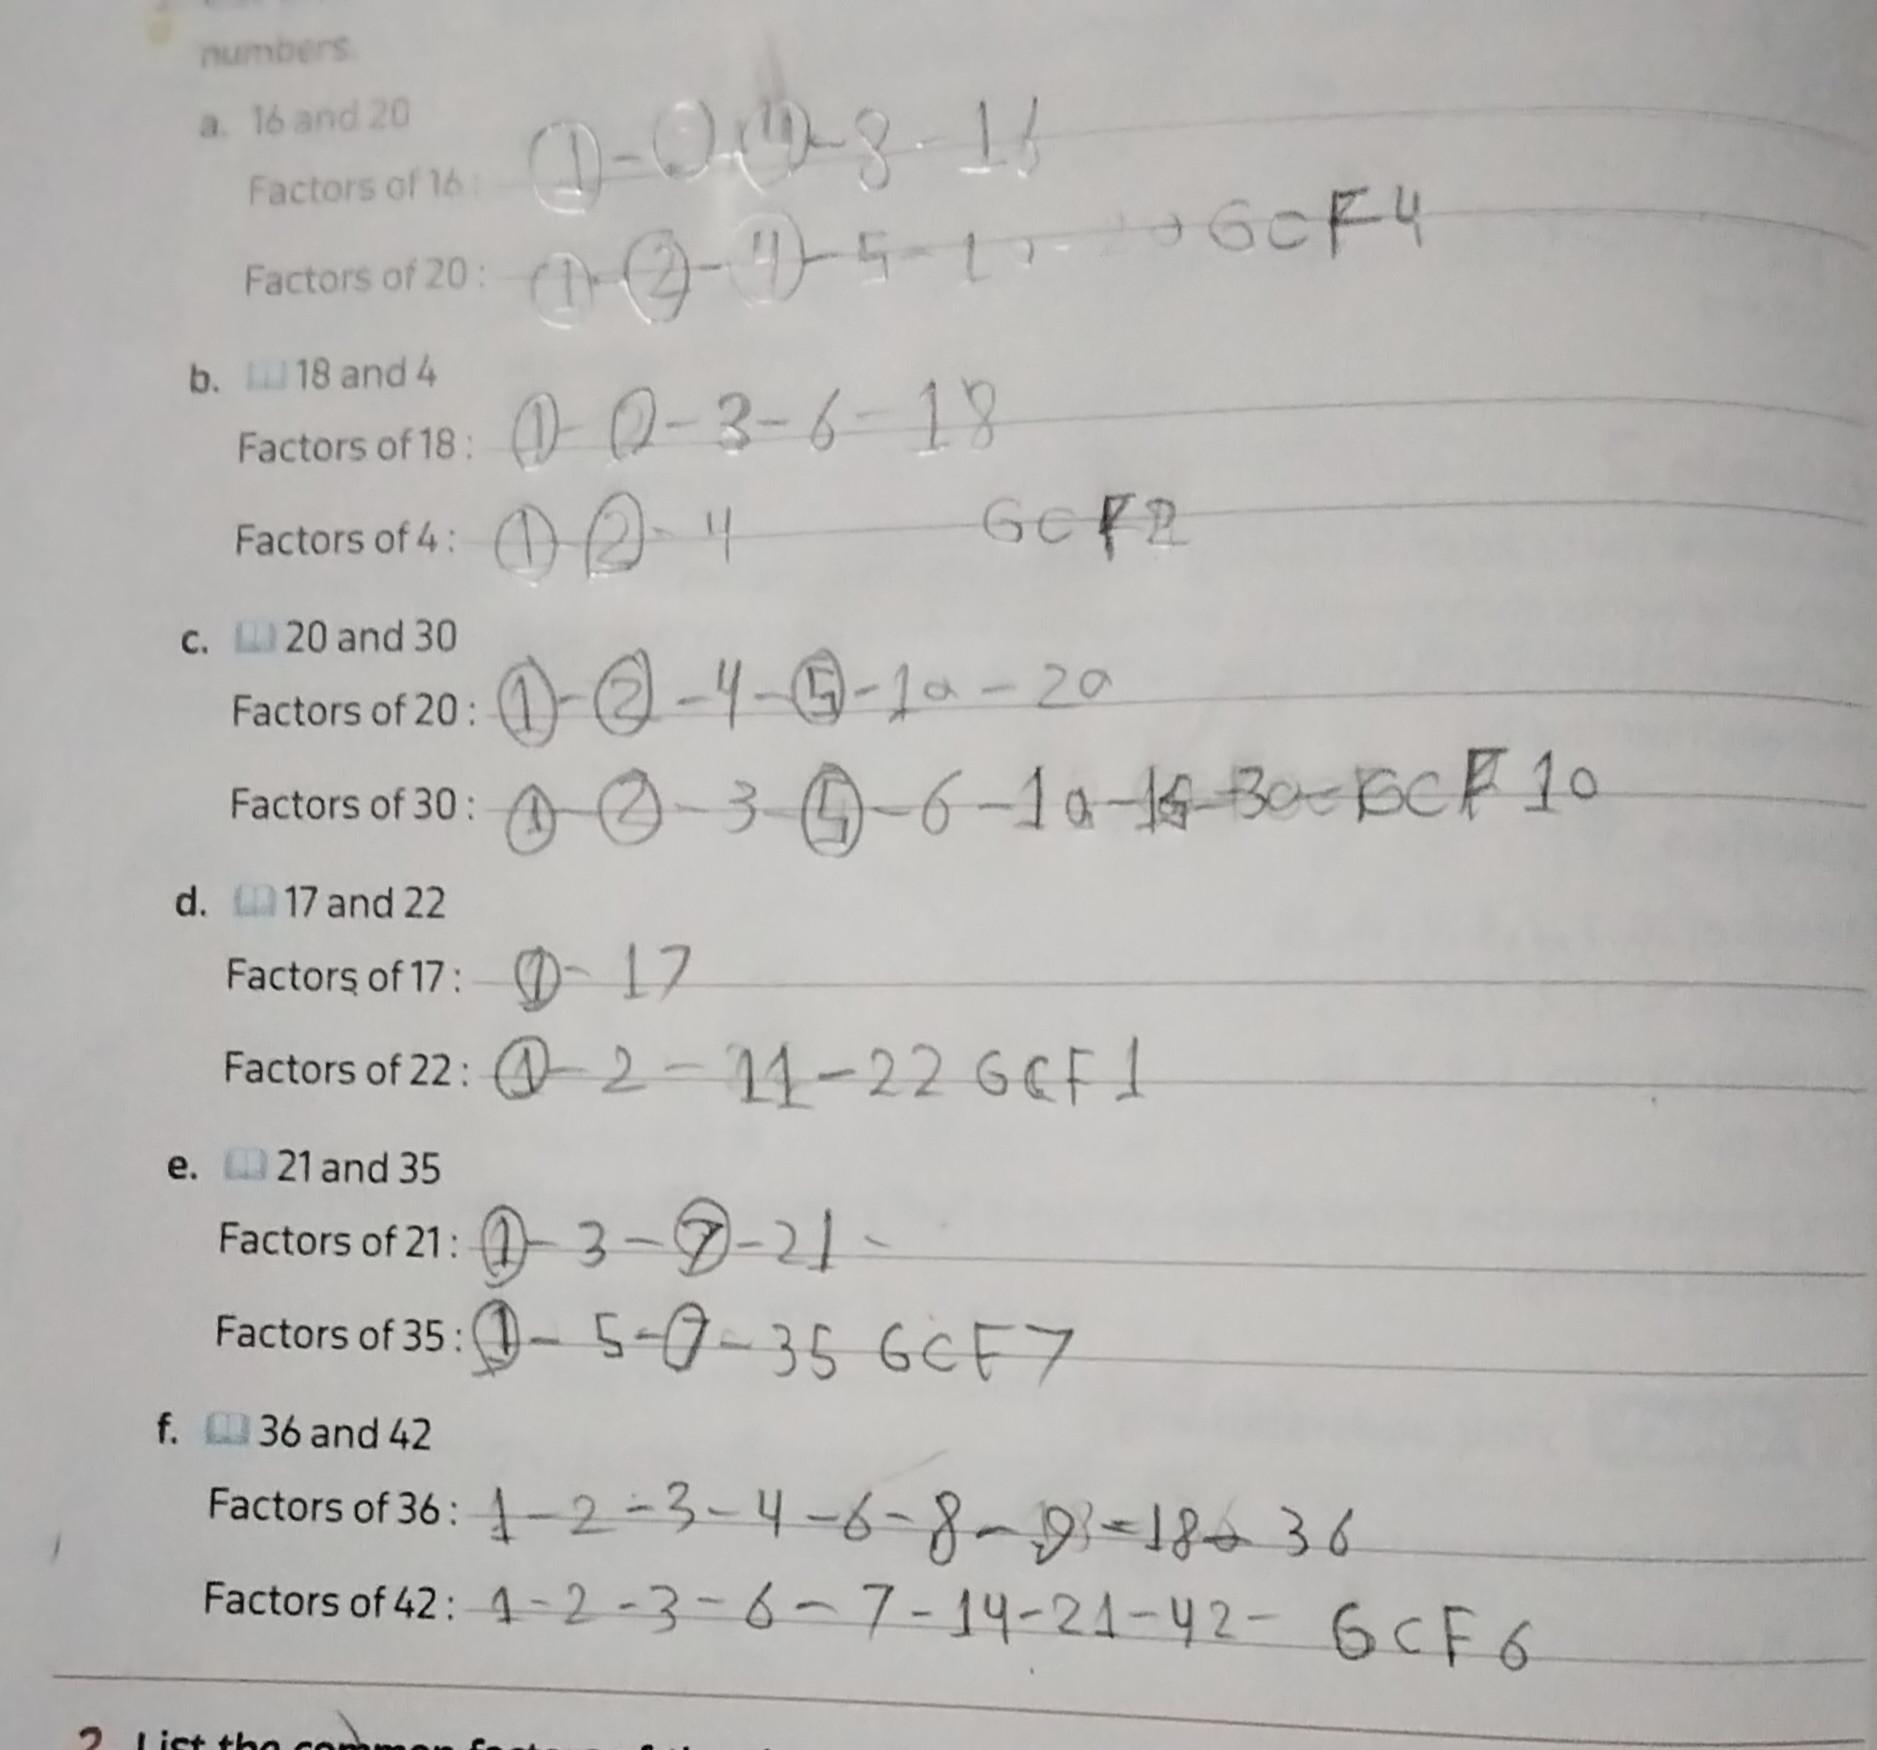 numbers.
a. 16 and 20
Factors of 16 : 1 - 2 - 4 - 8 - 16
Factors of 20 : 1 - 2 - 4 - 5 - 10 - 20 GCF 4
b. 18 and 4
Factors of 18 : 1 - 2 - 3 - 6 - 18
Factors of 4 : 1 - 2 - 4 GCF 2
c. 20 and 30
Factors of 20 : 1 - 2 - 4 - 5 - 10 - 20
Factors of 30 : 1 - 2 - 3 - 5 - 6 - 10 - 15 - 30 - GCF 10
d. 17 and 22
Factors of 17 : 1 - 17
Factors of 22 : 1 - 2 - 11 - 22 GCF 1
e. 21 and 35
Factors of 21 : 1 - 3 - 7 - 21 -
Factors of 35 : 1 - 5 - 7 - 35 GCF 7
f. 36 and 42
Factors of 36 : 1 - 2 - 3 - 4 - 6 - 8 - 9 - 18 - 36
Factors of 42 : 1 - 2 - 3 - 6 - 7 - 14 - 21 - 42 - GCF 6
2 List the common